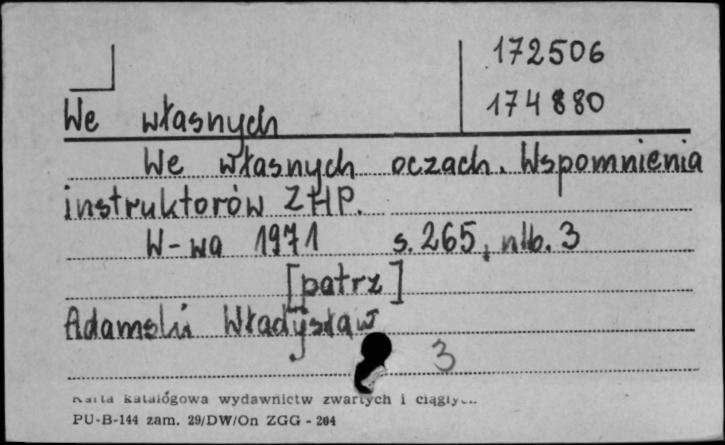 172506
174880
We własnych
We własnych oczach. Wspomnienia
instruktorów ZHP.
W-wa 1971 s. 265, nlb. 3
[patrz]
Adamski Władysław
3
Karta katalogowa wydawnictw zwartych i ciągły
PU-B-144 zam. 29/DW/On ZGG - 204